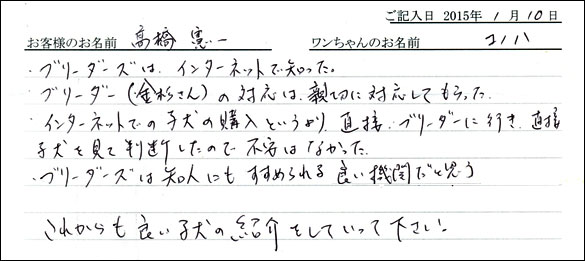 ご記入日 2015年 1月 10日
お客様のお名前 高橋 憲一 ワンちゃんのお名前 コノハ
・ブリーダーズは、インターネットで知った。
・ブリーダー(金杉さん)の対応は、親切に対応してもらった。
・インターネットでの子犬の購入というより、直接、ブリーダーに行き、直接
子犬を見て判断したので不安はなかった。
・ブリーダーズは知人にもすすめられる良い機関だと思う
これからも良い子犬の紹介をしていって下さい!